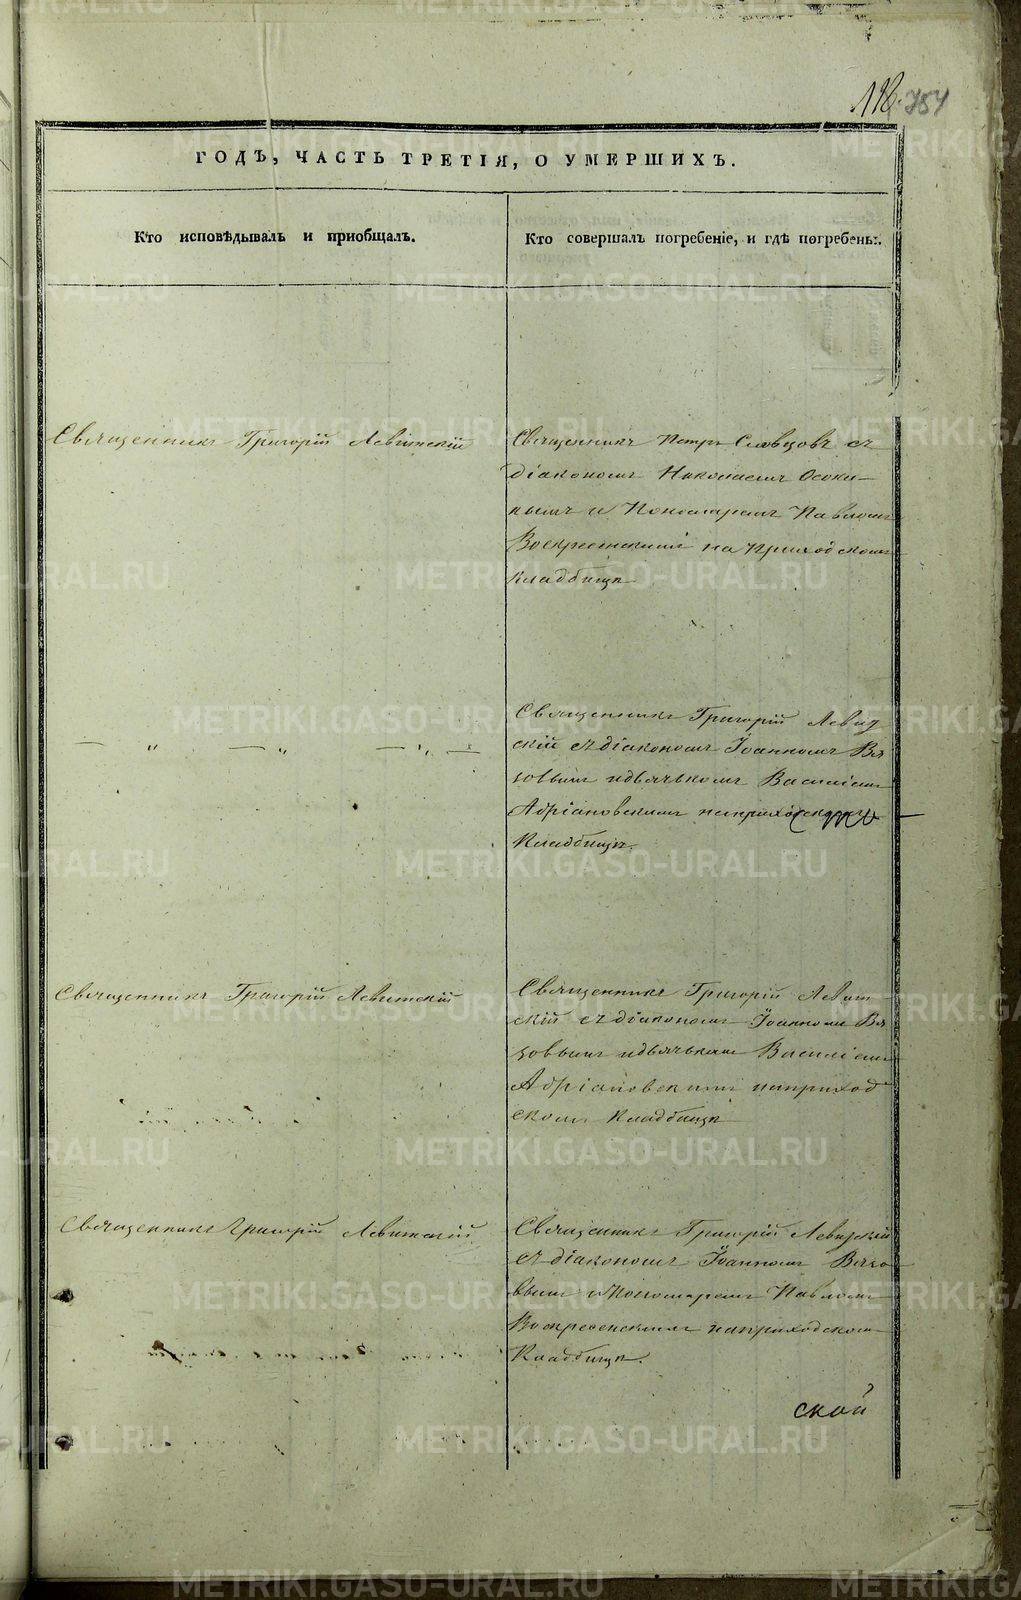 754
ГОДЪ, ЧАСТЬ ТРЕТІЯ, О УМЕРШИХЪ.
Кто исповѣдывалъ и пріобщалъ.
Кто совершалъ погребеніе, и гдѣ погребены.
Священникъ Григорій Левитскій
Священникъ Петръ Словцовъ съ
діакономъ Николаемъ Осоки-
нымъ и Пономаремъ Павломъ
Воскресенскимъ на приходскомъ
кладбищѣ
— „ — „ — „ —
Священникъ Григорій Левит
скій съ діакономъ Іоанномъ Вя
зовымъ и дьячькомъ Василіемъ
Адріановскимъ на приходскомъ
Кладбищѣ.
Священникъ Григорій Левитскій
Священникъ Григорій Левит
скій съ діакономъ Іоанномъ Вя
зовымъ и дьячькомъ Василіемъ
Адріановскимъ на приход
скомъ Кладбищѣ
Священникъ Григорій Левитскій
Священникъ Григорій Левитскій
съ діакономъ Іоанномъ Вязо
вымъ и Пономаремъ Павломъ
Воскресенскимъ на приходскомъ
Кладбищѣ.
ской
METRIKI.GASO-URAL.RU